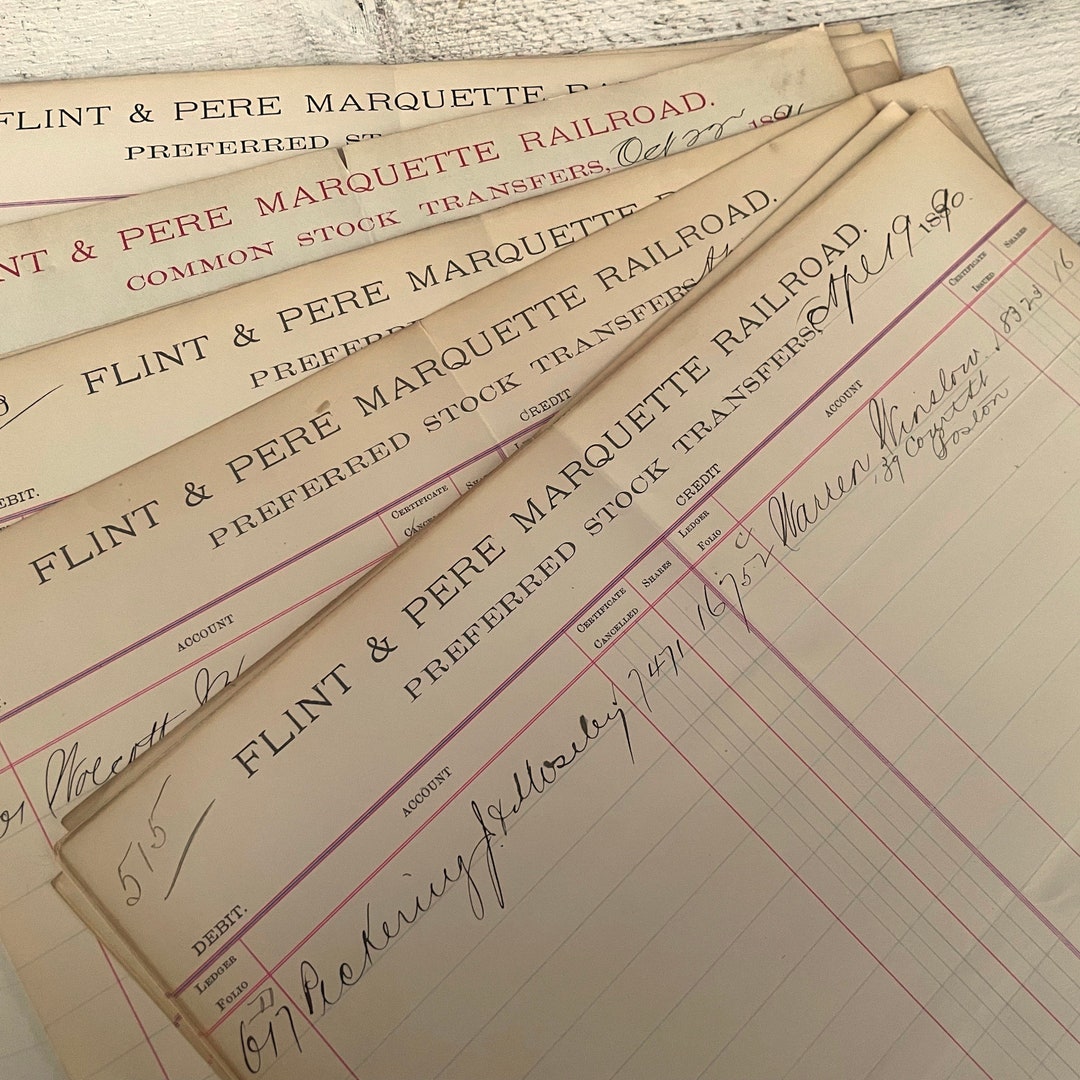 FLINT & PERE MARQUETTE
PREFERRED
FLINT & PERE MARQUETTE RAILROAD.
COMMON STOCK TRANSFERS, Oct 22 1891
FLINT & PERE MARQUETTE
PREFERR
DEBIT.
FLINT & PERE MARQUETTE RAILROAD.
PREFERRED STOCK TRANSFERS
CREDIT
CERTIFICATE
ACCOUNT
515
FLINT & PERE MARQUETTE RAILROAD.
PREFERRED STOCK TRANSFERS, Apl 19 1890.
DEBIT.
CREDIT
LEDGER FOLIO
ACCOUNT
CERTIFICATE CANCELLED
SHARES
LEDGER FOLIO
ACCOUNT
CERTIFICATE ISSUED
SHARES
617 Pickering J & Moseley 7471 16
752 Warren Winslow 8323 16
39 Court St
Boston